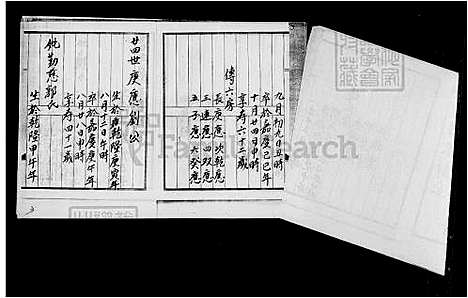 九月初九日丑時
卒於嘉慶己巳年
十月廿四日申時
享寿六十二歲
傳六房
長庚應 次乾應
三連應 四双應
五子應 六癸應
廿四世庚應劉公
生於乾隆庚寅年
八月十三日午時
卒於嘉慶庚午年
八月廿八日申時
享寿四十一歲
妣勤慈郭氏
生於乾隆甲午年
FamilySearch